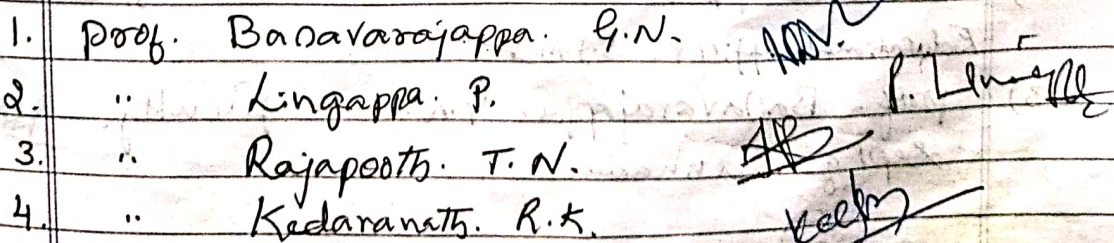 1. Prof. Basavarajappa. G.N.
2. " Lingappa. P. P. Lingappa
3. " Rajapooth. T. N.
4. " Kedaranath. R.K.